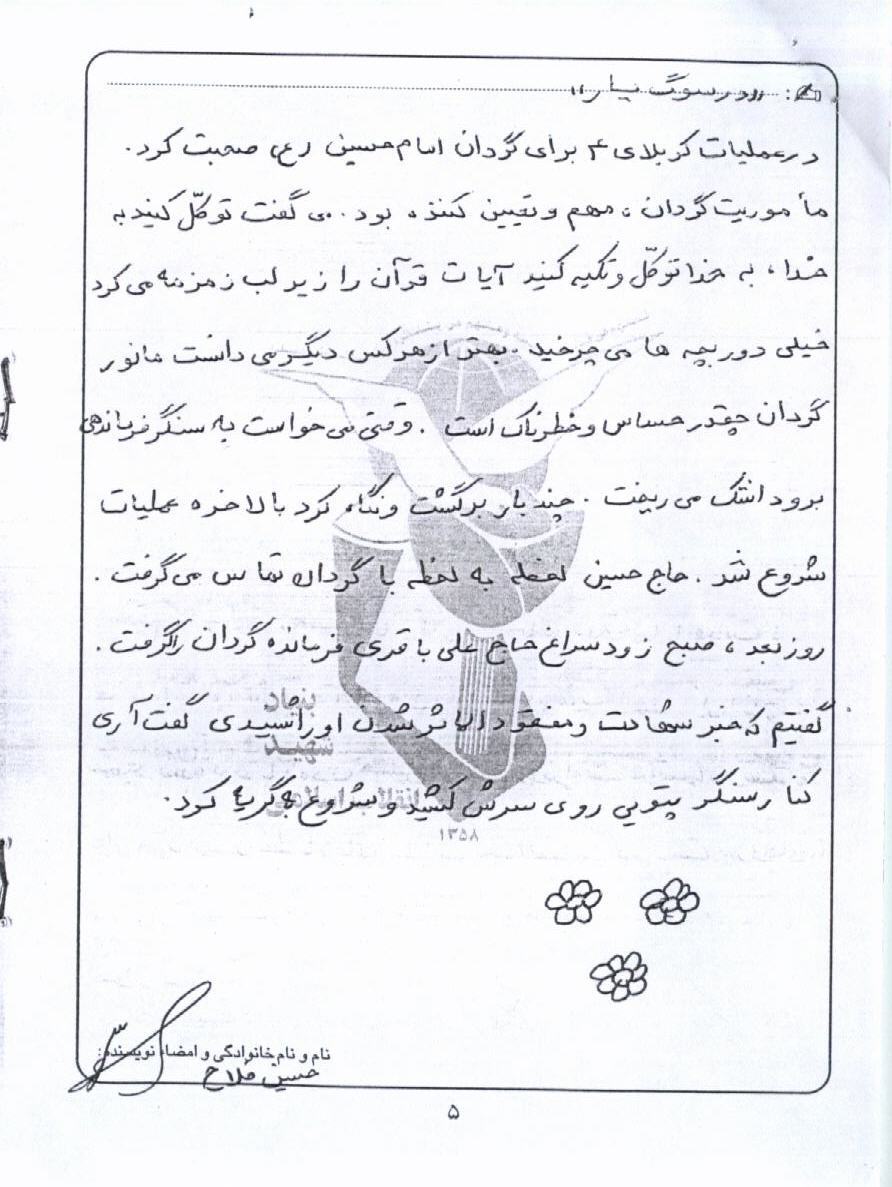 «در سوگ یار»
در عملیات کربلای ۴ برای گردان امام حسین (ع) صحبت کرد.
مأموریت گردان، مهم و تعیین کننده بود. می گفت توکّل کنید به
خدا، به خدا توکّل و تکیه کنید آیات قرآن را زیر لب زمزمه می کرد
خیلی دور بچه ها می چرخید. بهتر از هرکس دیگر می دانست مانور
گردان چقدر حساس و خطرناک است. وقتی می خواست به سنگر فرماندهی
برود اشک می ریخت. چند بار برگشت و نگاه کرد بالاخره عملیات
شروع شد. حاج حسین لحظه به لحظه با گردان تماس می گرفت.
روز بعد، صبح زود سراغ حاج علی باقری فرمانده گردان را گرفت.
گفتیم که خبر شهادت و مفقود الاثر شدن او را نسیدی گفت آری
کنار سنگر پتویی روی سرش کشید و شروع به گریه کرد.
بنیاد
شهید
انقلاب اسلامی
۱۳۵۸
نام و نام خانوادگی و امضاء نویسنده:
حسین فلاح
۵